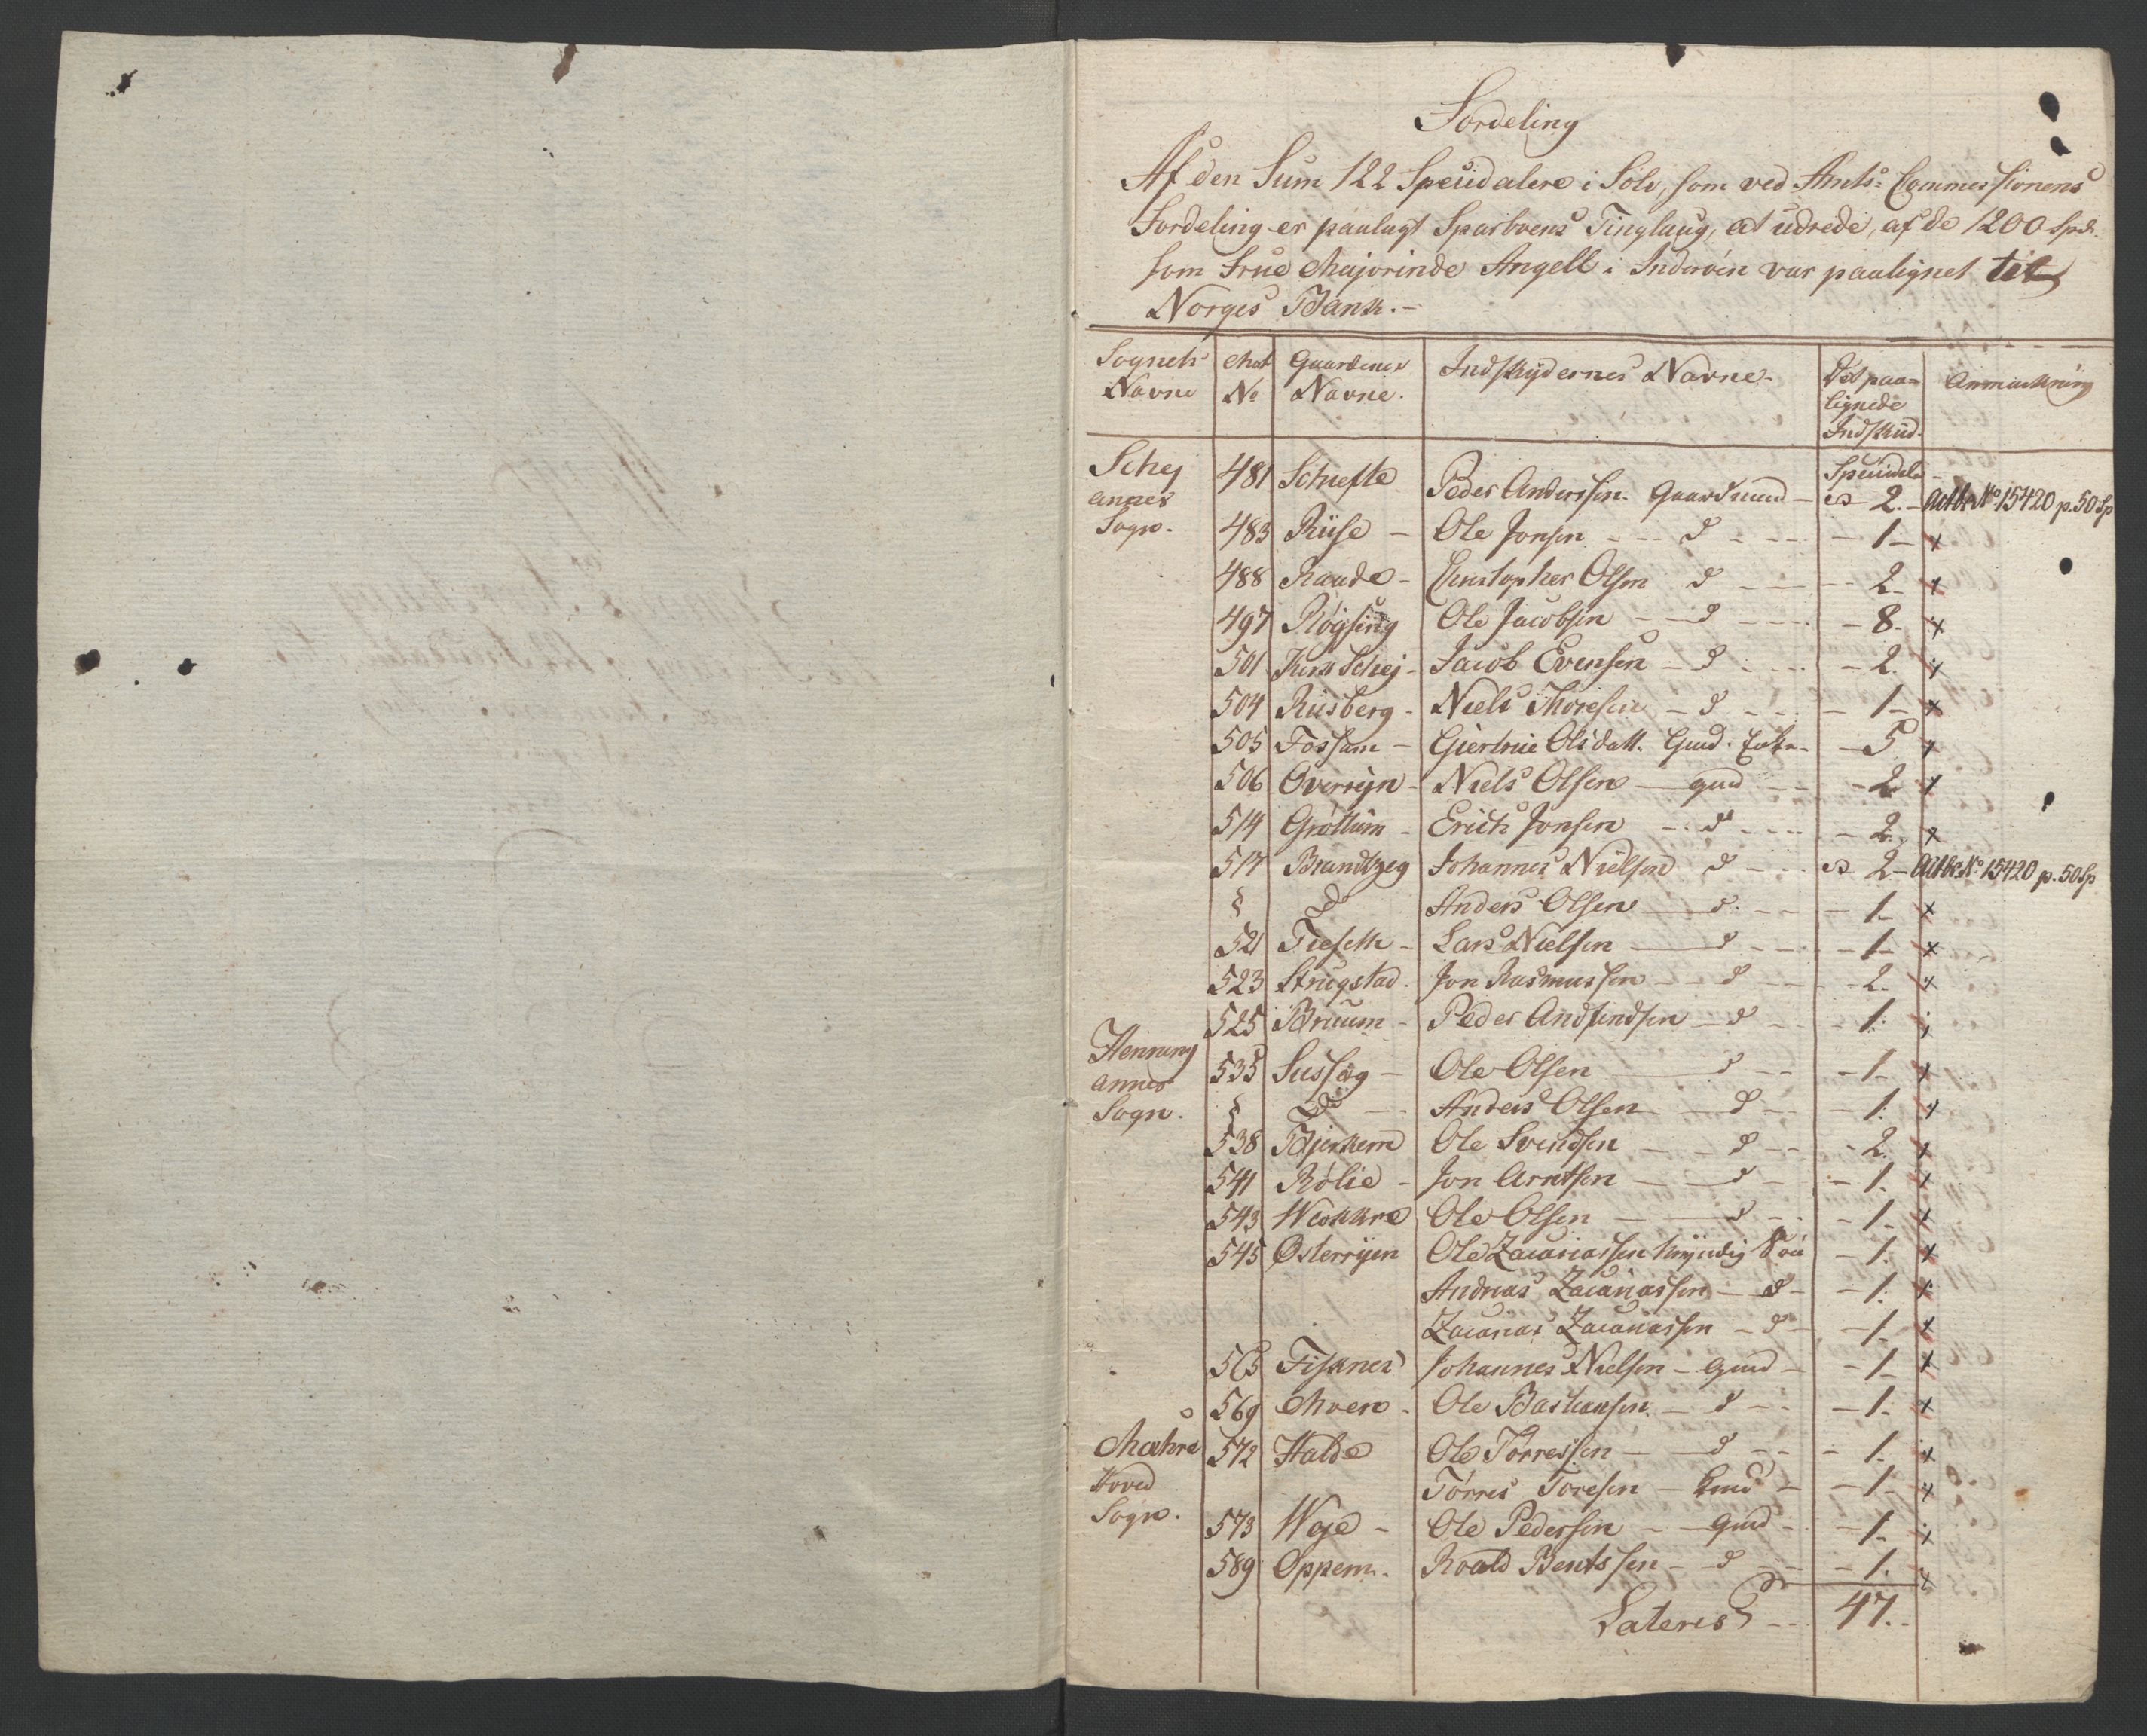 Fordeling
Af den Sum 122 Speciedalere i Sölv, som ved Amts-Commissionens
Fordeling er paalagt Sparboens Tinglaug, at udrede, af de 1200 Spd.
som Frue Majorinde Angell i Inderöen var paalignet til
Norges Bank.
Sognets Navne | Mat No | Gaardenes Navne. | Indskydernes Navne | Det paalignede Indskud. | Anmærkning
Schej annex Sogn. | 481 | Schiefte | Peder Anderssen Gaardmand | Speciedaler 2. | Actbr No 15420 p. 50 Sp
483 | Riise | Ole Jonsen d | 1 | x
488 | Raude | Christopher Olsen d | 2 | x
497 | Röysing | Ole Jacobsen d | 8. | x
501 | Kirk Schej | Jacob Evensen d | 2. | x
504 | Riisberg | Niels Thoresen d | 1 | x
505 | Fossum | Giertrue Olsdatt. Gmd. Enke | 5 | x
506 | Overrijn | Niels Olsen gmd | 2 | x
514 | Gröttum | Erich Jonsen d | 2. | x
517 | Brandtzeg | Johannes Nielsen d | 2 | Actbr No 15420 p. 50 Sp
§ | Do | Anders Olsen d | 1 | x
521 | | Lars Nielsen d | 1 | x
523 | Strugstad. | Jon Rasmussen d | 2. | x
525 | Bruum | Peder Andfindsen d | 1. | x
Henning annex Sogn. | 535 | Sussæg | Ole Olsen d | 1 | x
§ | Do | Anders Olsen d | 1. | x
538 | Bjerkem | Ole Svendsen d | 2. | x
541 | Rölie | Jon Arntsen d | 1. | x
543 | Wekkre | Ole Olsen d | 1. | x
545 | Österrijen | Ole Zacariassen Umyndig | 1. | x
Andreas Zacariassen d | 1. | x
Zacarias Zacariassen d | 1. | x
565 | Fisknes | Johannes Nielsen gmd | 1 | x
569 | Moen | Ole Bastiansen d | 1. | x
Mæhre Hoved Sogn. | 572 | Halde | Ole Törressen d | 1. | x
Törres Toresen | 1 | x
573 | Woje | Ole Pedersen gmd | 1. | x
589 | Oppem. | Roald Bentssen d | 1. | x
Lateris 47.